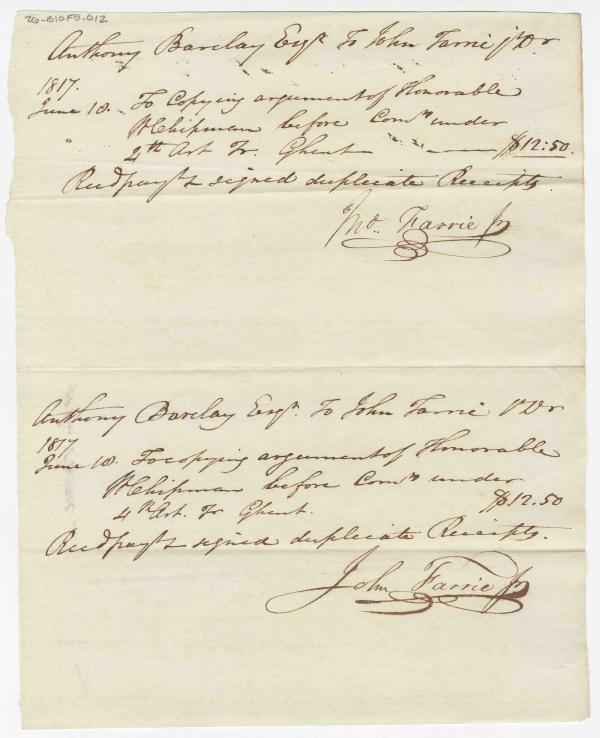 26-B10F5-012
Anthony Barclay Esqr. To John Farrie jr Dr
1817.
June 18. To Copying argument of Honorable
W Chipman before Comrs under
4th Art Tr. Ghent $12:50.
Recd payt & signed duplicate Receipts.
Jno. Farrie Jr
Anthony Barclay Esqr. To John Farrie Jr Dr
1817
June 18. To copying argument of Honorable
W Chipman before Comrs under
4th Art. Tr Ghent. $12.50
Recd payt & signed duplicate Receipts.
John Farrie Jr